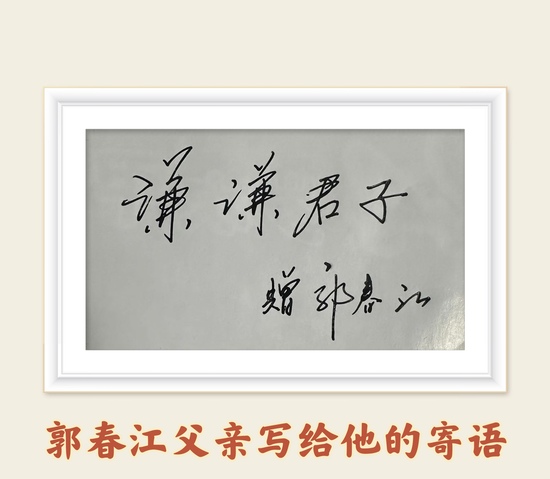 谦谦君子
赠郭春江
郭春江父亲写给他的寄语